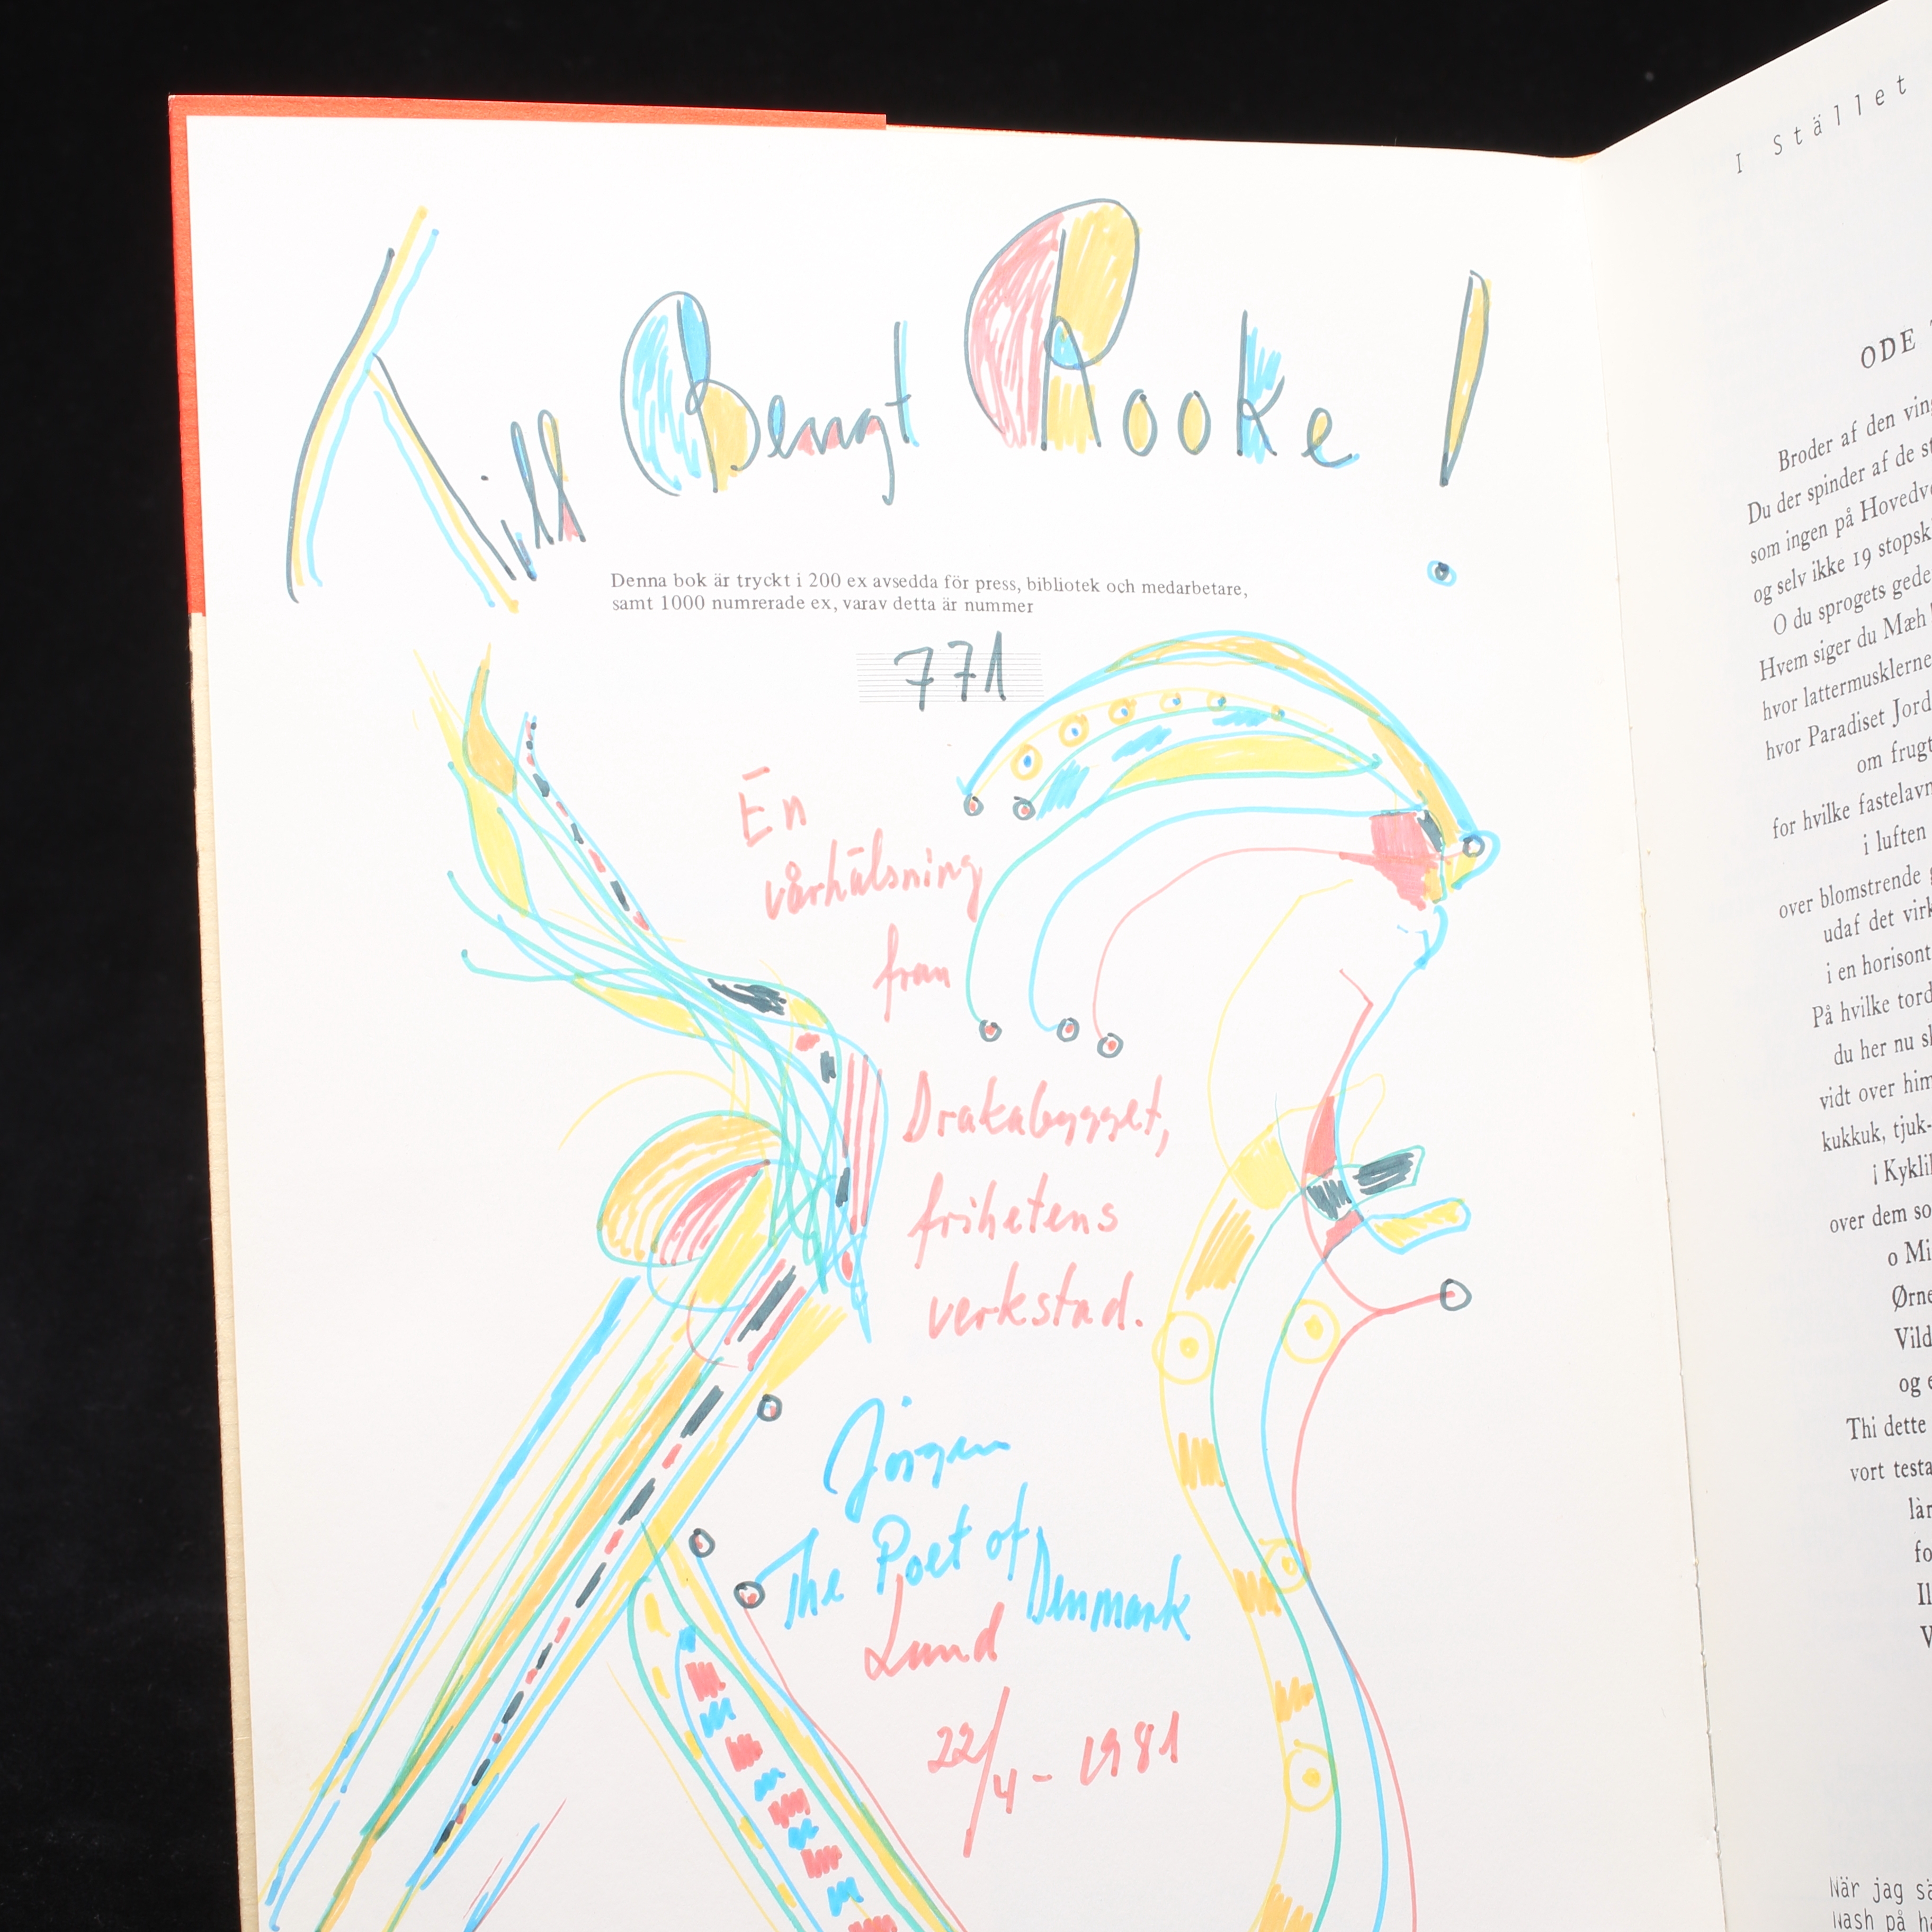 Till Bengt Rooke!
Denna bok är tryckt i 200 ex avsedda för press, bibliotek och medarbetare,
samt 1000 numrerade ex, varav detta är nummer
771
En
vårhälsning
från
Drakabygget,
frihetens
verkstad.
Jörgen
The Poet of Denmark
Lund
22/4 - 1981
I Stället
ODE
Broder af den
Du der spinder af de
som ingen på
og selv ikke 19
O du sprogets
Hvem siger du Mæh
hvor lattermusklerne
hvor Paradiset
om
for hvilke
i luften
over blomstrende
udaf det
i en
På hvilke
du her nu
vidt over
kukkuk, tjuk-
i
over dem
o
og
Thi dette
vort
När jag
Nash på